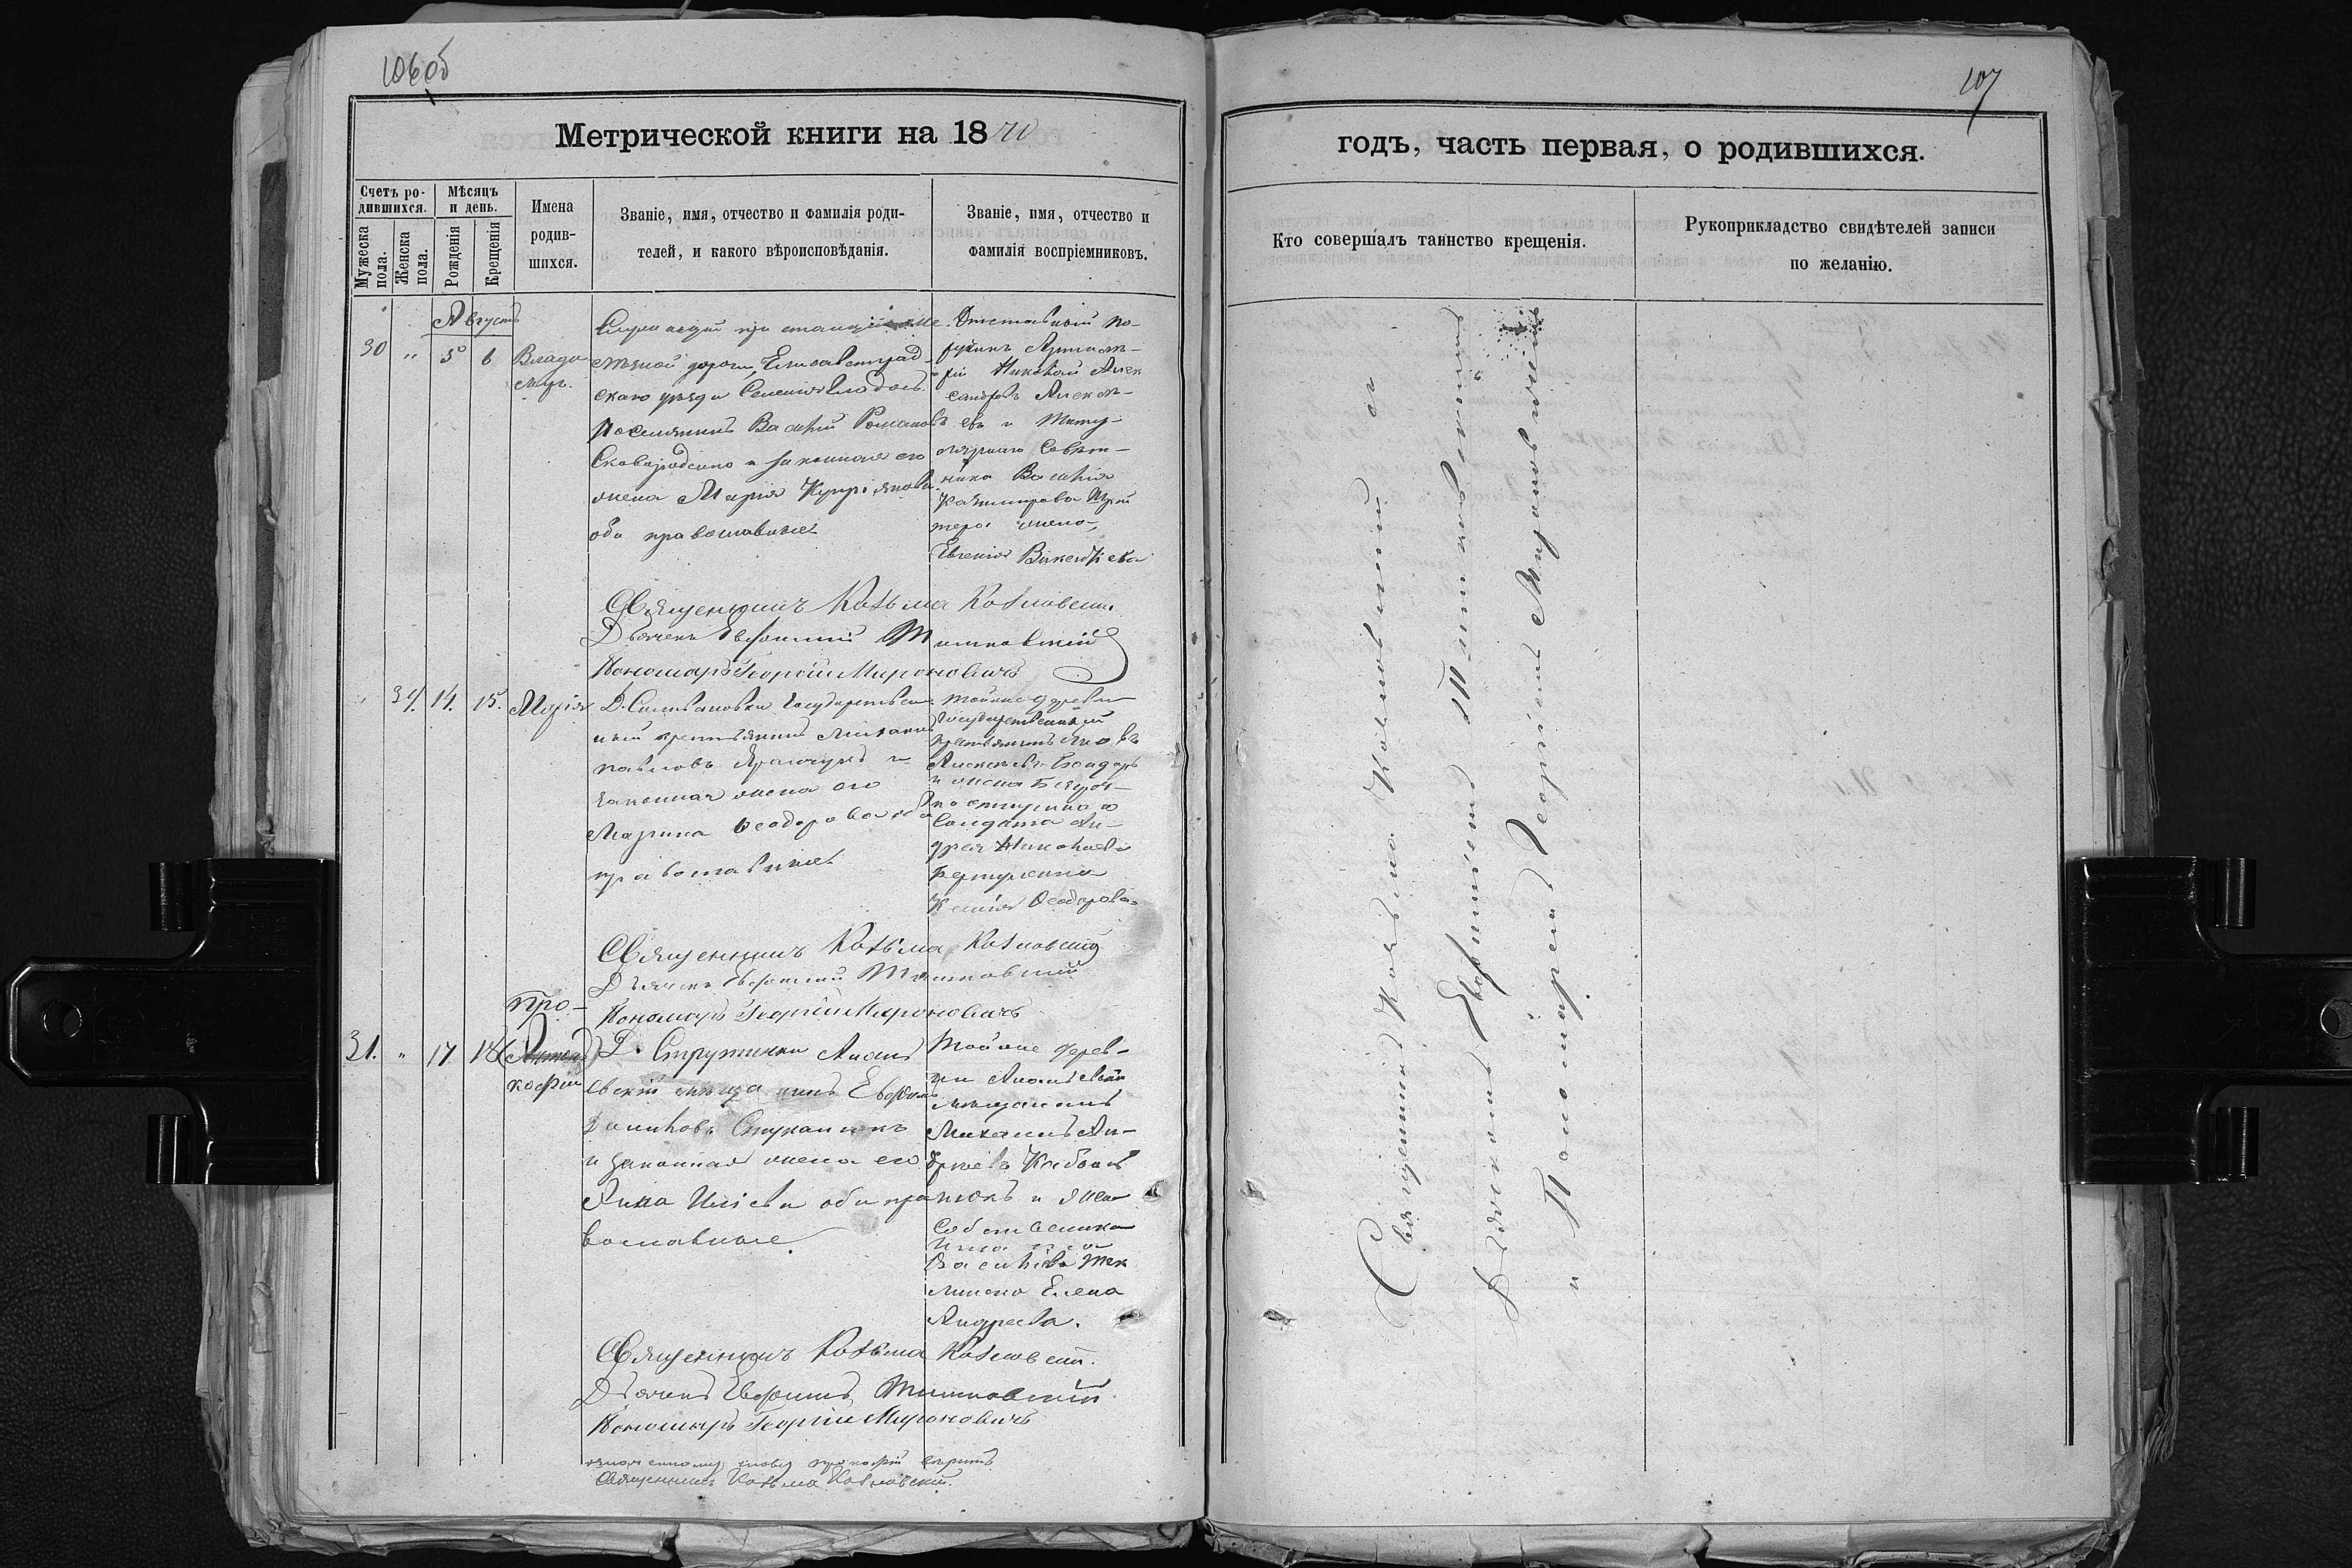 106об
Метрической книги на 1870
Счетъ ро-
дившихся.
Мужеска пола.
Женска пола.
Мѣсяцъ
и день.
Рожденія
Крещенія
Имена
родив-
шихся.
Званіе, имя, отчество и фамилія роди-
телей, и какого вѣроисповѣданія.
Званіе, имя, отчество и
фамилія воспріемниковъ.
Августъ
30 „ 5 6
Влади
миръ.
Служащій при станціи желе
скаго уѣзда
поселянинъ Василій Романовъ
Сковороденко и законная его
жена Марія Купріянова
оба православные
Отставной по-
ручикъ
Николай Алек
сандровъ Алексѣ-
евъ и Титу-
лярнаго Совѣт-
ника Василія
Казимирова
жена
Евгенія Викентіева
Священникъ Козьма Козловскій.
Дьячекъ Евфимій Тишковскій
Пономарь Георгій Мироновичъ
34. 14. 15.
Марія
Д. Сильвановки Государствен
ный крестьянинъ Михаилъ
Павловъ и
законная жена его
Марина Ѳеодорова оба
православные
Тойже деревни
Государственный
крестьянинъ Яковъ
Алексѣевъ Бондарь
и жена безсроч-
но отпускнаго
Солдата Ан-
дрея Николаева
Ксенія Ѳеодорова
Священникъ Козьма Козловскій
Дьячекъ Евфимій Тишковскій
Пономарь Георгій Мироновичъ
31. „ 17 18
Про-
(Антонъ)
кофій
Д. Струтинки Анань
евскій мѣщанинъ Евфимъ
и законная жена его
Анна Иліева оба пра
вославные.
Тойже дерев-
ни Ананьевскій
мѣщанинъ
Михаилъ Ан-
дреевъ
и жена
Собственника
Василіева
Елена
Андреева.
Священникъ Козьма Козловскій.
Дьячекъ Евфимій Тишковскій
Пономарь Георгій Мироновичъ
слову Прокофій вѣрить
Священникъ Козьма Козловскій.
107
годъ, часть первая, о родившихся.
Кто совершалъ таинство крещенія.
Рукоприкладство свидѣтелей записи
по желанію.
Священникъ Козьма Козловскій съ
Дьячкомъ Евфиміемъ Тишковскимъ
и Пономаремъ Георгіемъ Мироновичемъ